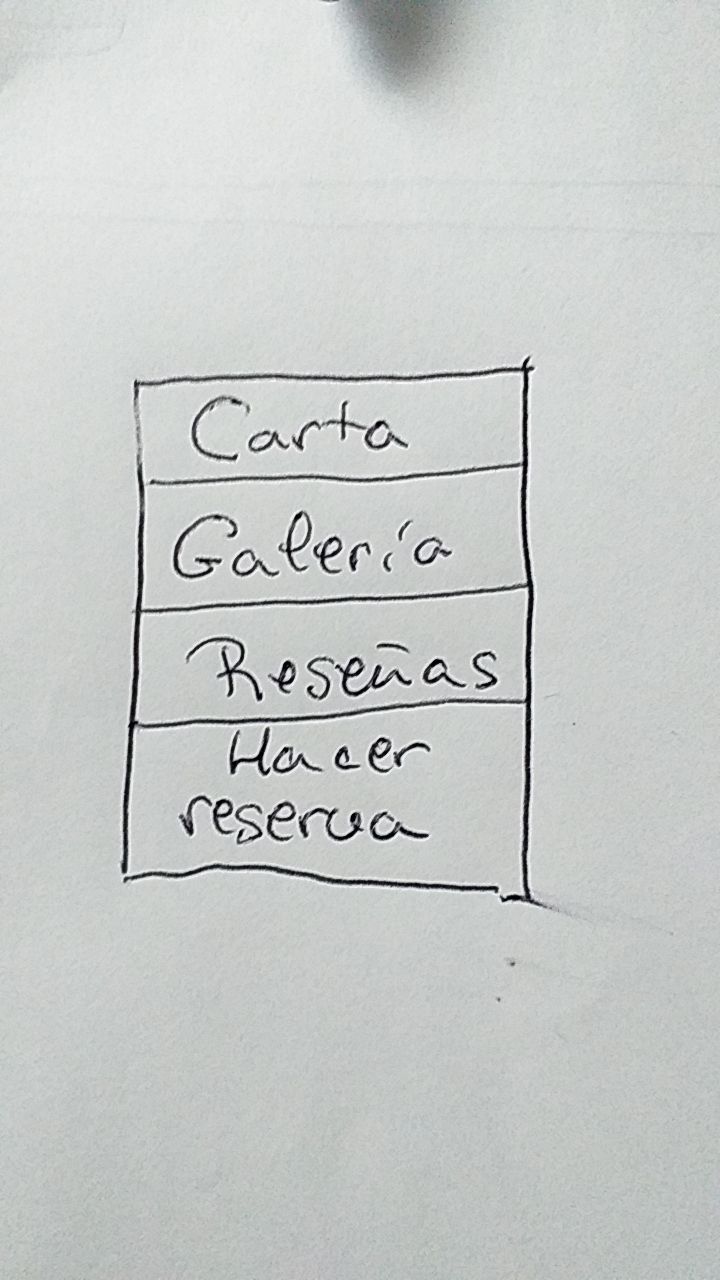 Carta
Galería
Reseñas
Hacer
reserva